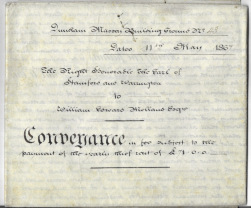 Dunham Massey Building Ground No
Dated 11th May 186
The Right Honorable The Earl of
Stamford and Warrington
to
William Edward Esqre
Conveyance in fee subject to the
payment of the yearly chief rent of £